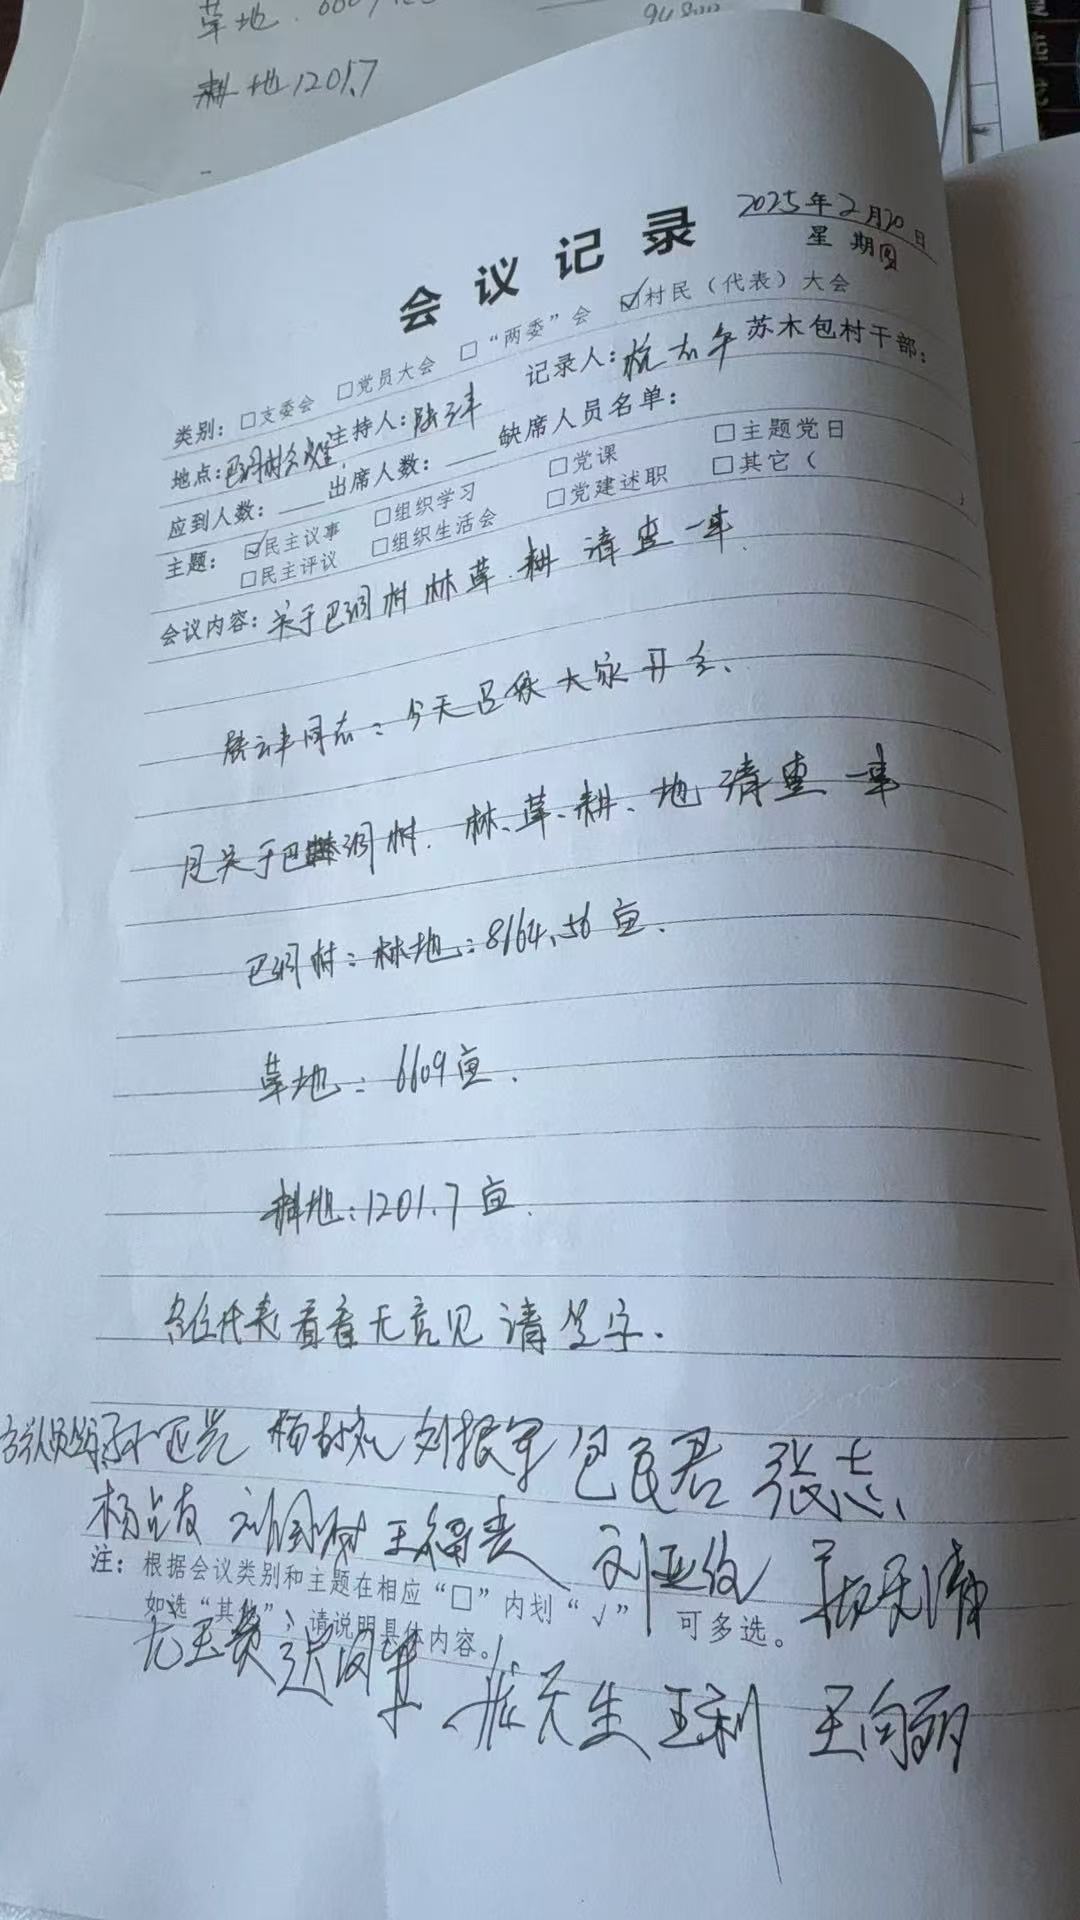 草地
耕地1201.7
会议记录
2025年2月20日
星期四
类别：□支委会 □党员大会 □“两委”会 ☑村民（代表）大会
地点：巴润村 主持人： 记录人： 苏木包村干部：
应到人数： 出席人数： 缺席人员名单：
主题： ☑民主议事 □组织学习 □党课 □主题党日
□民主评议 □组织生活会 □党建述职 □其它（ ）
会议内容：关于巴润村林草.耕清查一事.
同志：今天召集大家开会、
是关于巴润村.林、草、耕、地清查一事
巴润村：林地：8164.56亩.
草地：6609亩.
耕地：1201.7亩.
各位代表看看无意见请签字.
刘振军 包良君 张志
杨占友 刘国树 王福贵 刘亚俊
注：根据会议类别和主题在相应“□”内划“√” 可多选。
如选“其它”，请说明具体内容。
天生 王利 王向丽